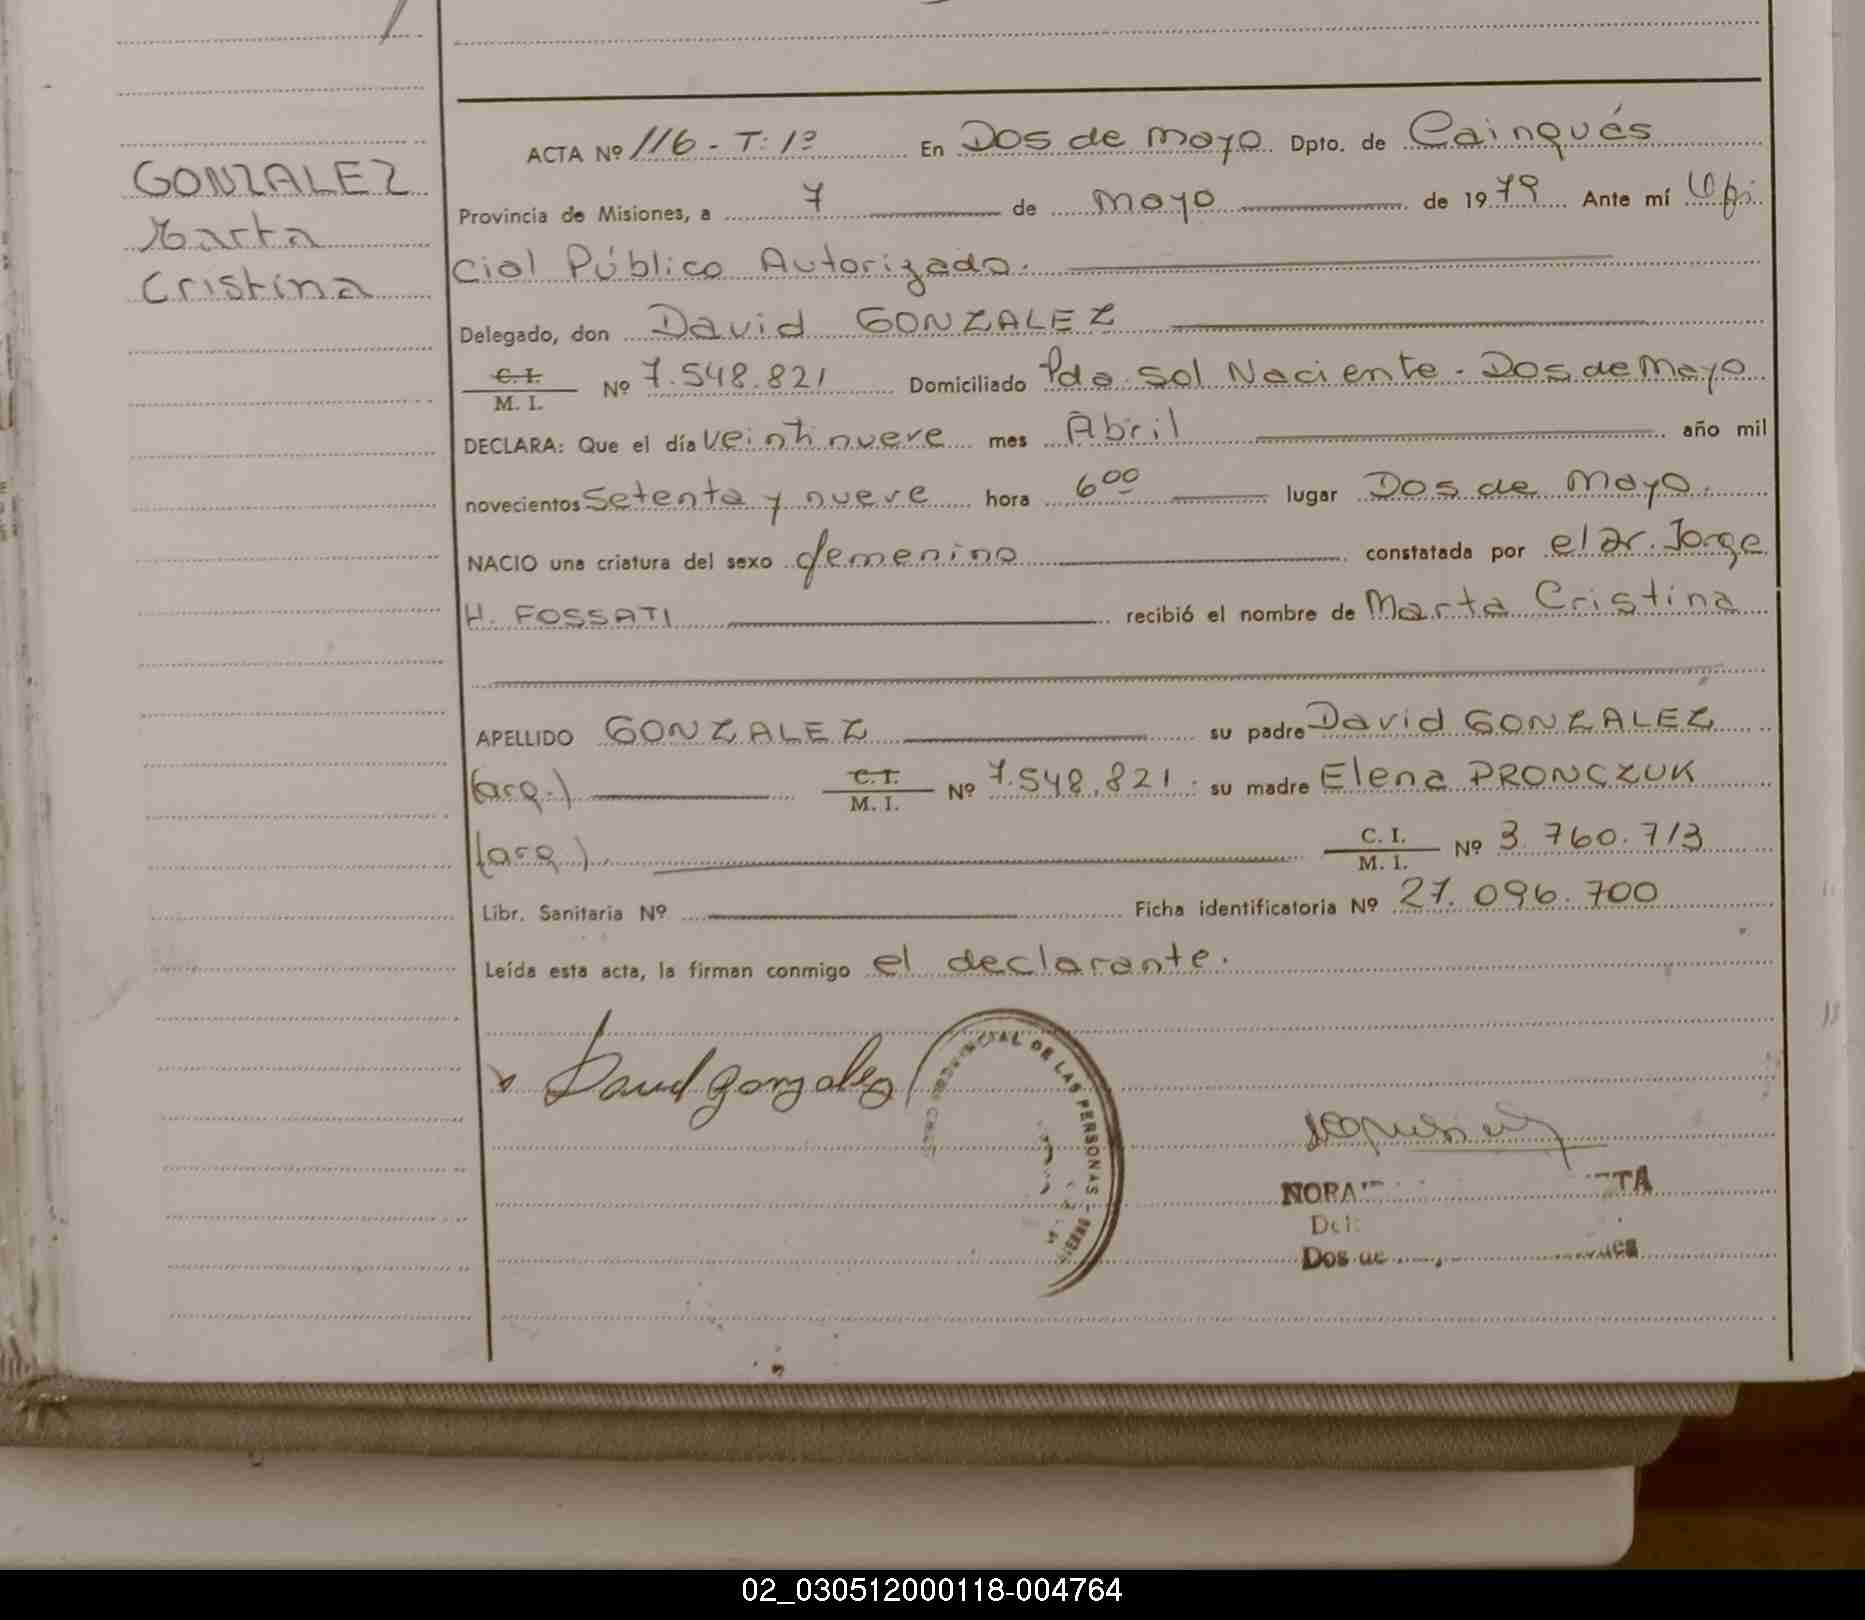 GONZALEZ
Marta
Cristina
ACTA Nº 116 - T: 1º En Dos de Mayo Dpto. de Cainguás
Provincia de Misiones, a 7 de Mayo de 1979 Ante mí Ofi
cial Público Autorizado.
Delegado, don David GONZALEZ
C. I.
M. I. Nº 7.548.821 Domiciliado Pdo. Sol Naciente - Dos de Mayo
DECLARA: Que el día veintinueve mes Abril año mil
novecientos Setenta y nueve hora 6 00 lugar Dos de Mayo.
NACIO una criatura del sexo femenino constatada por el Dr. Jorge
H. FOSSATI recibió el nombre de Marta Cristina
APELLIDO GONZALEZ su padre David GONZALEZ
(arg.) C. I. M. I. Nº 7.548.821. su madre Elena PRONCZUK
(arg.) C. I. M. I. Nº 3.760.713
Libr. Sanitaria Nº Ficha identificatoria Nº 27.096.700
Leída esta acta, la firman conmigo el declarante.
David Gonzalez
PROVINCIAL DE LAS PERSONAS
NORA
Dos de
02_030512000118-004764